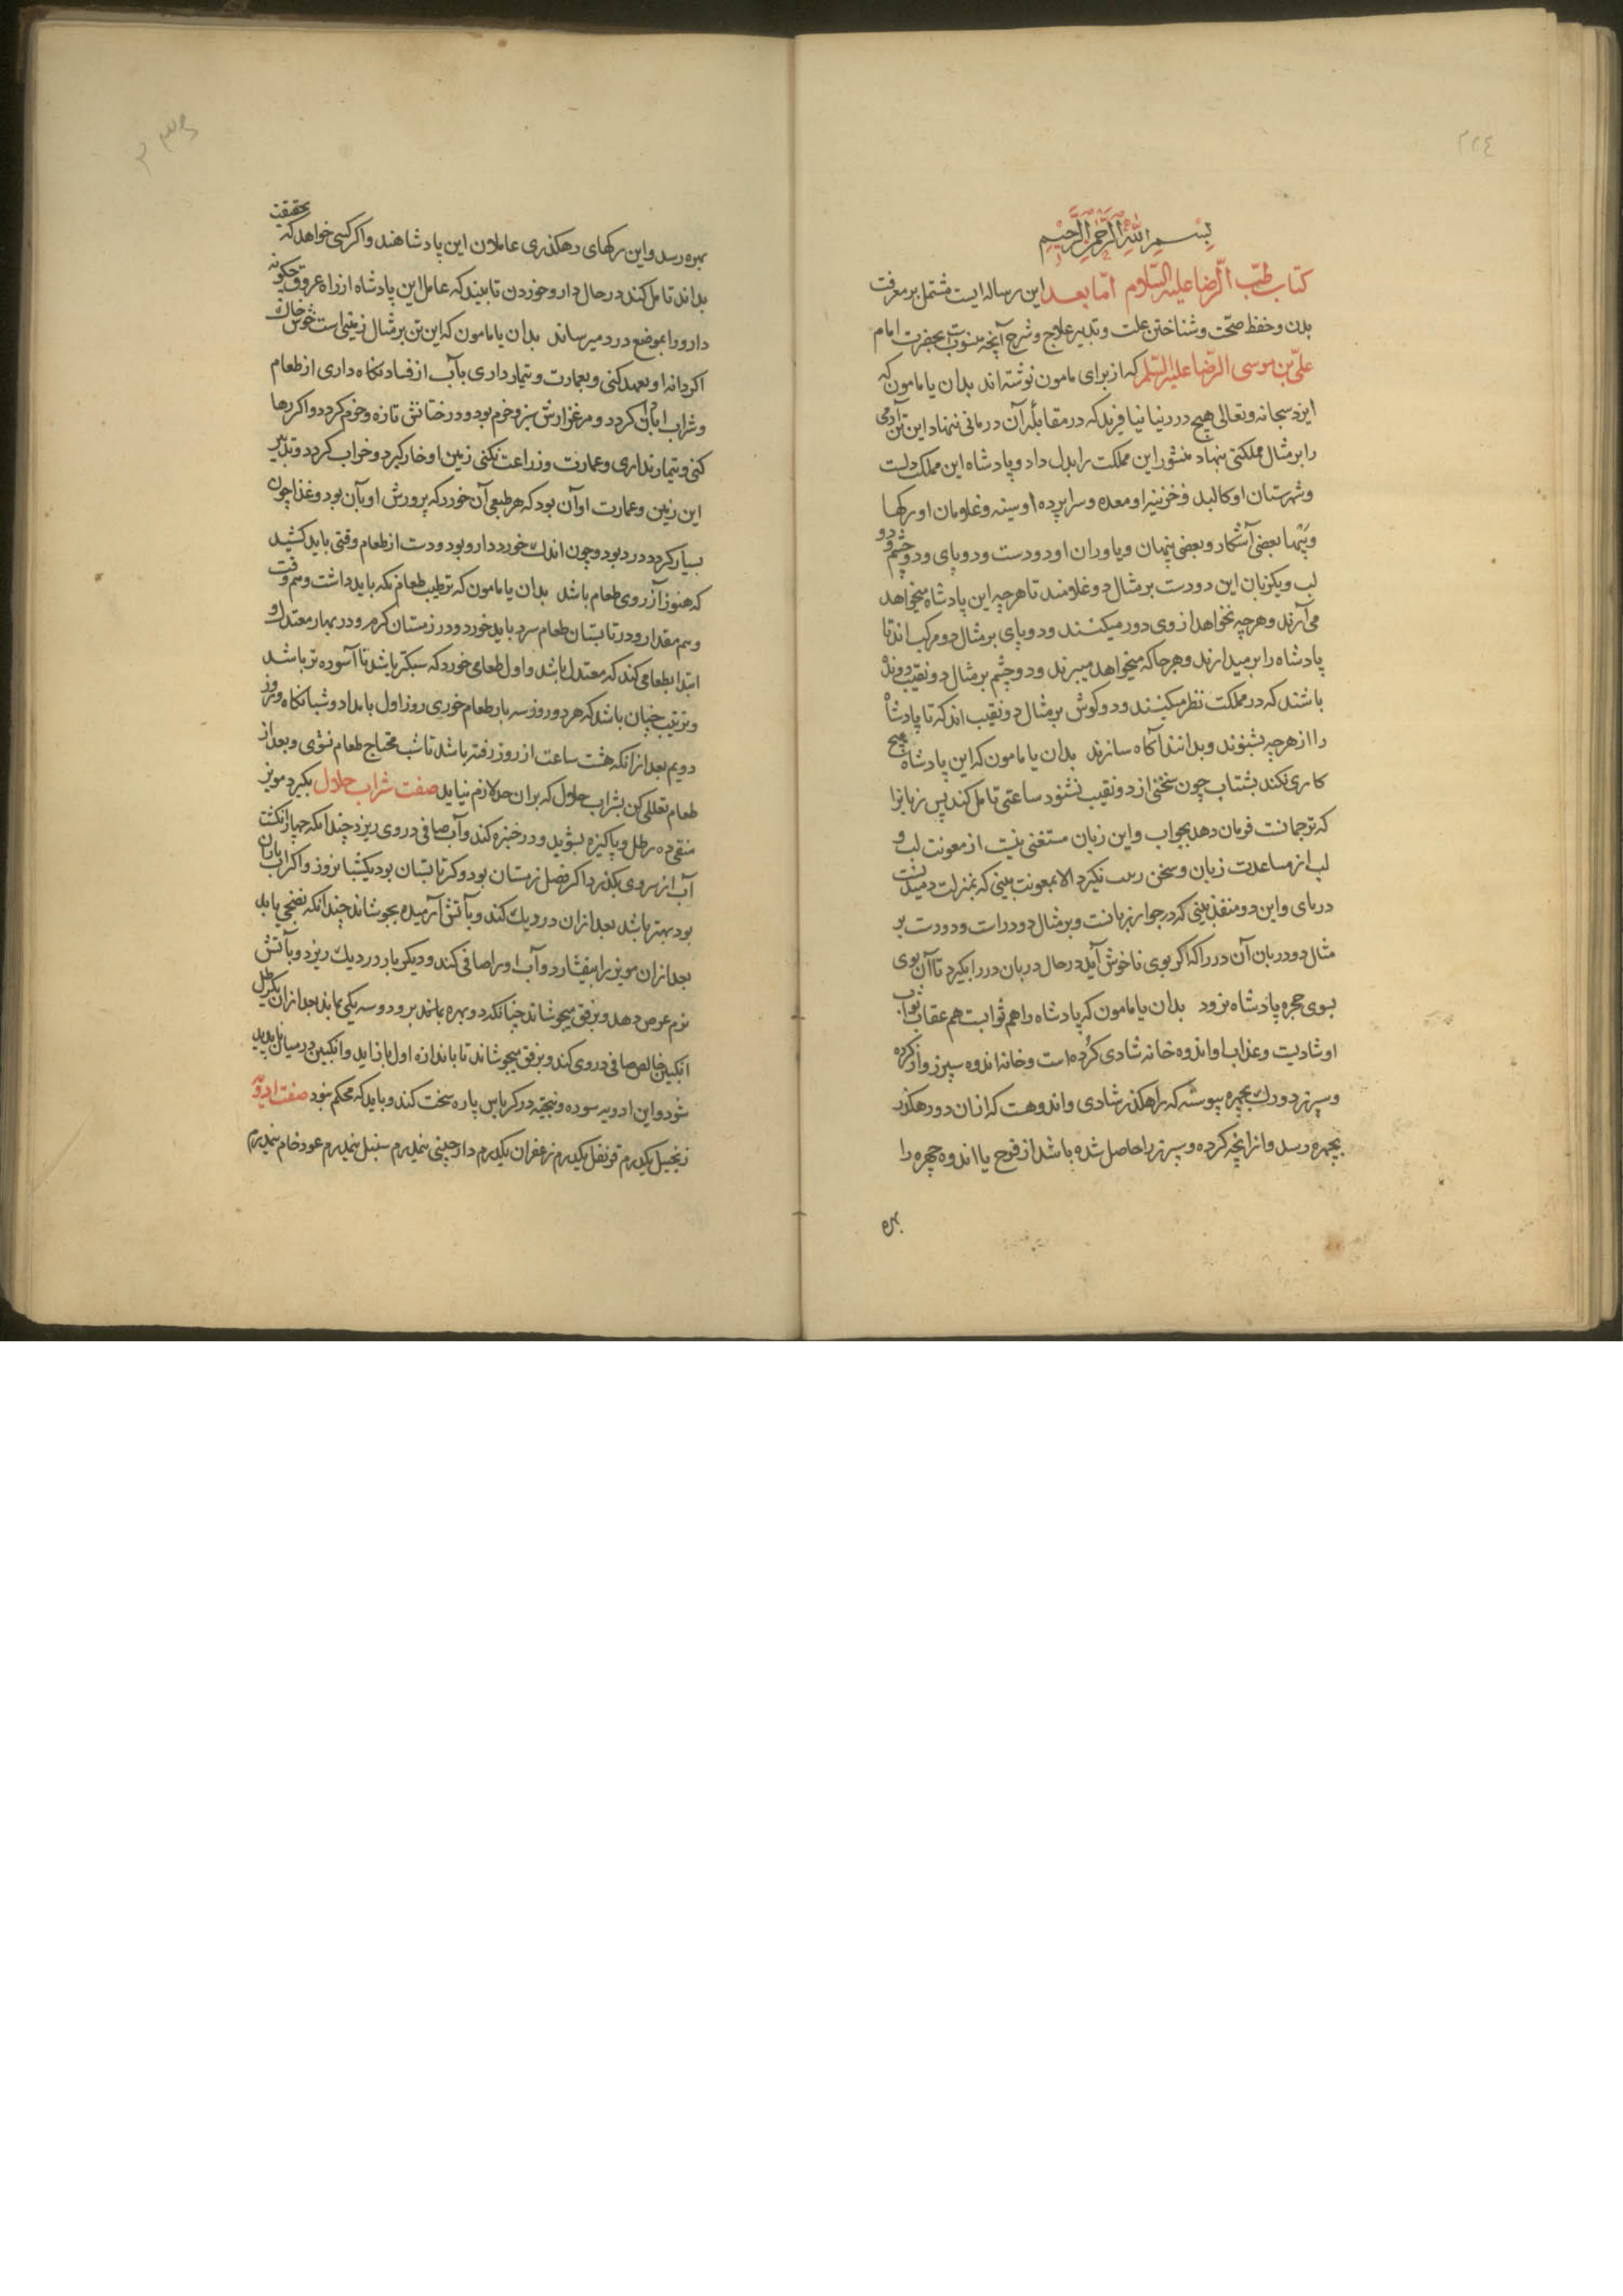 ٢٢٤
بسم الله الرحمن الرحیم
کتاب طب الرضا علیه السلام اما بعد این رساله ایست مشتمل بر معرفت
بدن و حفظ صحت و شناختن علت و تدبیر علاج و شرح آنچه منسوبست بحضرت امام
علی بن موسی الرضا علیه السلم که از برای مامون نوشته اند بدان یا مامون که
ایزد سبحانه و تعالی هیچ درد نیافرید که در مقابله آن درمانی ننهاد این تن آدمی
را بر مثال مملکتی نهاد منشور این مملکت را بدل داد و پادشاه این مملکت دلست
و شهرستان او کالبد و خزینه او معده و سراپرده او سینه و غلامان او رکها
و پیها بعضی آشکار و بعضی پنهان و یاوران او دو دست و دو پای و دو چشم و دو
لب و یک زبان این دو دست بر مثال دو غلامند تا هرچه این پادشاه میخواهد
می آرند و هرچه نخواهد از وی دور میکنند و دو پای بر مثال دو مرکب اند تا
پادشاه را بر میدارند و هرجا که میخواهد میبرند و دو چشم بر مثال دو نقیب
باشند که در مملکت نظر میکنند و دو کوش بر مثال دو نقیب اند که تا پادشاه
را از هرچه بشنوند و بدانند آکاه سازند بدان یا مامون که این پادشاه هیچ
کاری نکند بشتاب چون سخنی از دو نقیب بشنود ساعتی تامل کند پس زبانرا
که ترجمانست فرمان دهد بجواب و این زبان مستغنی نیست از معونت لب و
لب از مساعدت زبان و سخن نکیرد الا بمعونت بینی که بمنزلت
در نای و این دو منفذ بینی که در جوار زبانست و بر مثال دو دراست و دو دست بر
مثال دو دربان آن در را که اکر بوی ناخوش آید در حال دربان در را بکیرد تا آن بوی
بسوی حجره پادشاه نرود بدان یا مامون که پادشاه را هم ثوابست هم عقاب ثواب
او شادیست و عذاب او اندوه خانه شادی کرده است و خانه اندوه سپرز و از کرده
و سپرز دو رک بچهره پیوسته که راهکذر شادی و اندوهست که از ان دو رهکذر
بچهره رسد و از انچه کرده و سپرز را حاصل شده باشد از فرح یا اندوه چهره را
بهره
بهره رسد و این رکهای رهکذری عاملان این پادشاهند و اکر کسی خواهد که بحقیقت
بداند تامل کند در حال دارو خوردن تا بیند که عامل این پادشاه از راه عروق چکونه
دارو را بموضع درد میرساند بدان یا مامون که این تن بر مثال زمینی است خوش خاک
اکر دانه او تعهد کنی و بعمارت و تیمار داری بآب از فساد نکاه داری از طعام
و شراب آبادان کردد و مرغزارش سبز و خرم بود و درختانش تازه و خرم کردد و اکر رها
کنی و تیمار نداری و عمارت و زراعت نکنی زمین او خار کیرد و خراب کردد و تدبیر
این زمین و عمارت او آن بود که هر طبعی آن خورد که پرورش او بآن بود و غذا چون
بسیار کردد درد بود و چون اندک خورد دارو بود و دست از طعام وقتی باید کشید
که هنوز آرزوی طعام باشد بدان یا مامون که ترتیب طعام نکه باید داشت و هم وقت
و هم مقدار و در تابستان طعام سرد باید خورد و در زمستان کرم و در بهار معتدل و
ابتدا بطعامی کند که معتدل باشد و اول طعامی خورد که سبکتر باشد تا آسوده تر باشد
و ترتیب چنان باشد که هر دو روز سه بار طعام خوری روز اول بامداد و شبانکاه و روز
دویم بعد از انکه هشت ساعت از روز رفته باشد تا شب محتاج طعام نشوی و بعد از
طعام تعللی کن بشراب حلال که بر ان حد لازم نیاید صفت شراب حلال بکیرد مویز
منقی ده رطل و پاکیزه بشوید و در خنبره کند و آب صافی در وی ریزد چندانکه چهار انکشت
آب از سر وی بکذرد اکر فصل زمستان بود و کر تابستان بود یکشبانروز و اکر آب باران
بود بهتر باشد بعد از ان در دیک کند و بآتش آرمیده بجوشاند چندانکه نضجی یابد
بعد از ان مویز را بیفشارد و آب او را صافی کند و دیکر بار در دیک ریزد و بآتش
نرم عوض دهد و برفق میجوشاند چنانکه دو بهره بماند برود و سه یکی بماند بعد از ان یکرطل
انکبین خالص صافی در وی کند و برفق میجوشاند تا باندازه اول باز آید و انکبین در میان ناپدید
شود و این ادویه سوده و بیخته در کرباس پاره سخت کند و باید که محکم نبود صفت ادویه
زنجبیل یکدرم قرنفل یکدرم زعفران یکدرم دارچینی نیمدرم سنبل نیمدرم عود خام نیمدرم